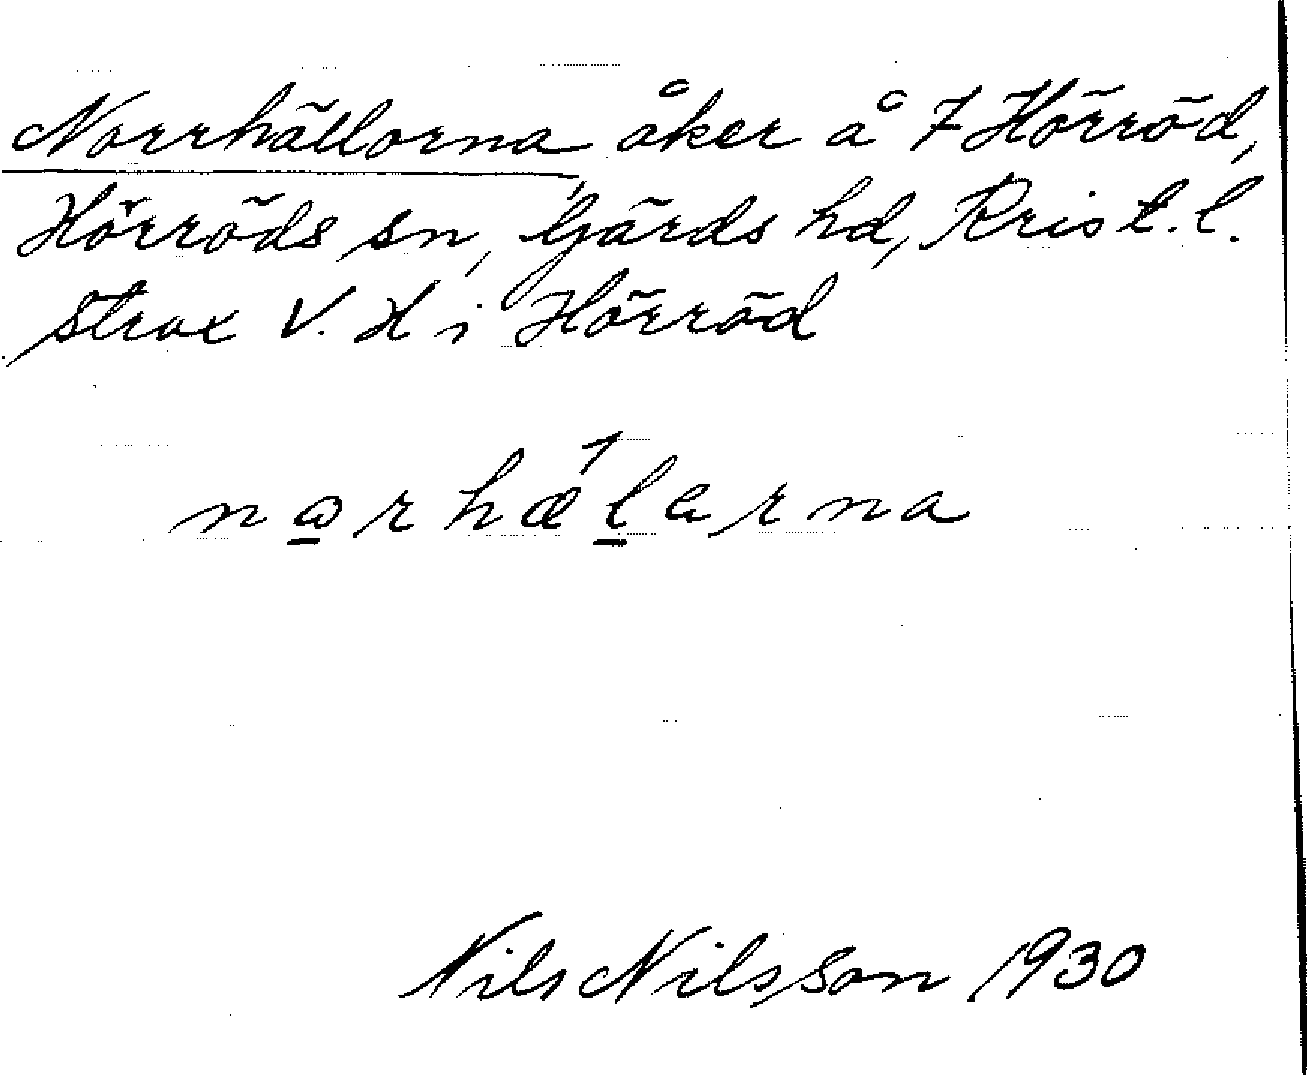 Norrhällorna åker å 7 Hörröd,
Hörröds sn, Gärds hd, Krist. l.
strax V. H i Hörröd
narhælarna
Nils Nilsson 1930